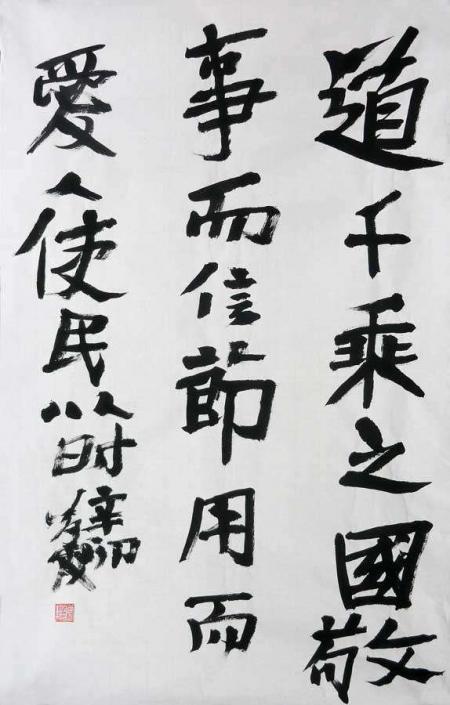 道千乘之國敬
事而信節用而
愛人使民以时